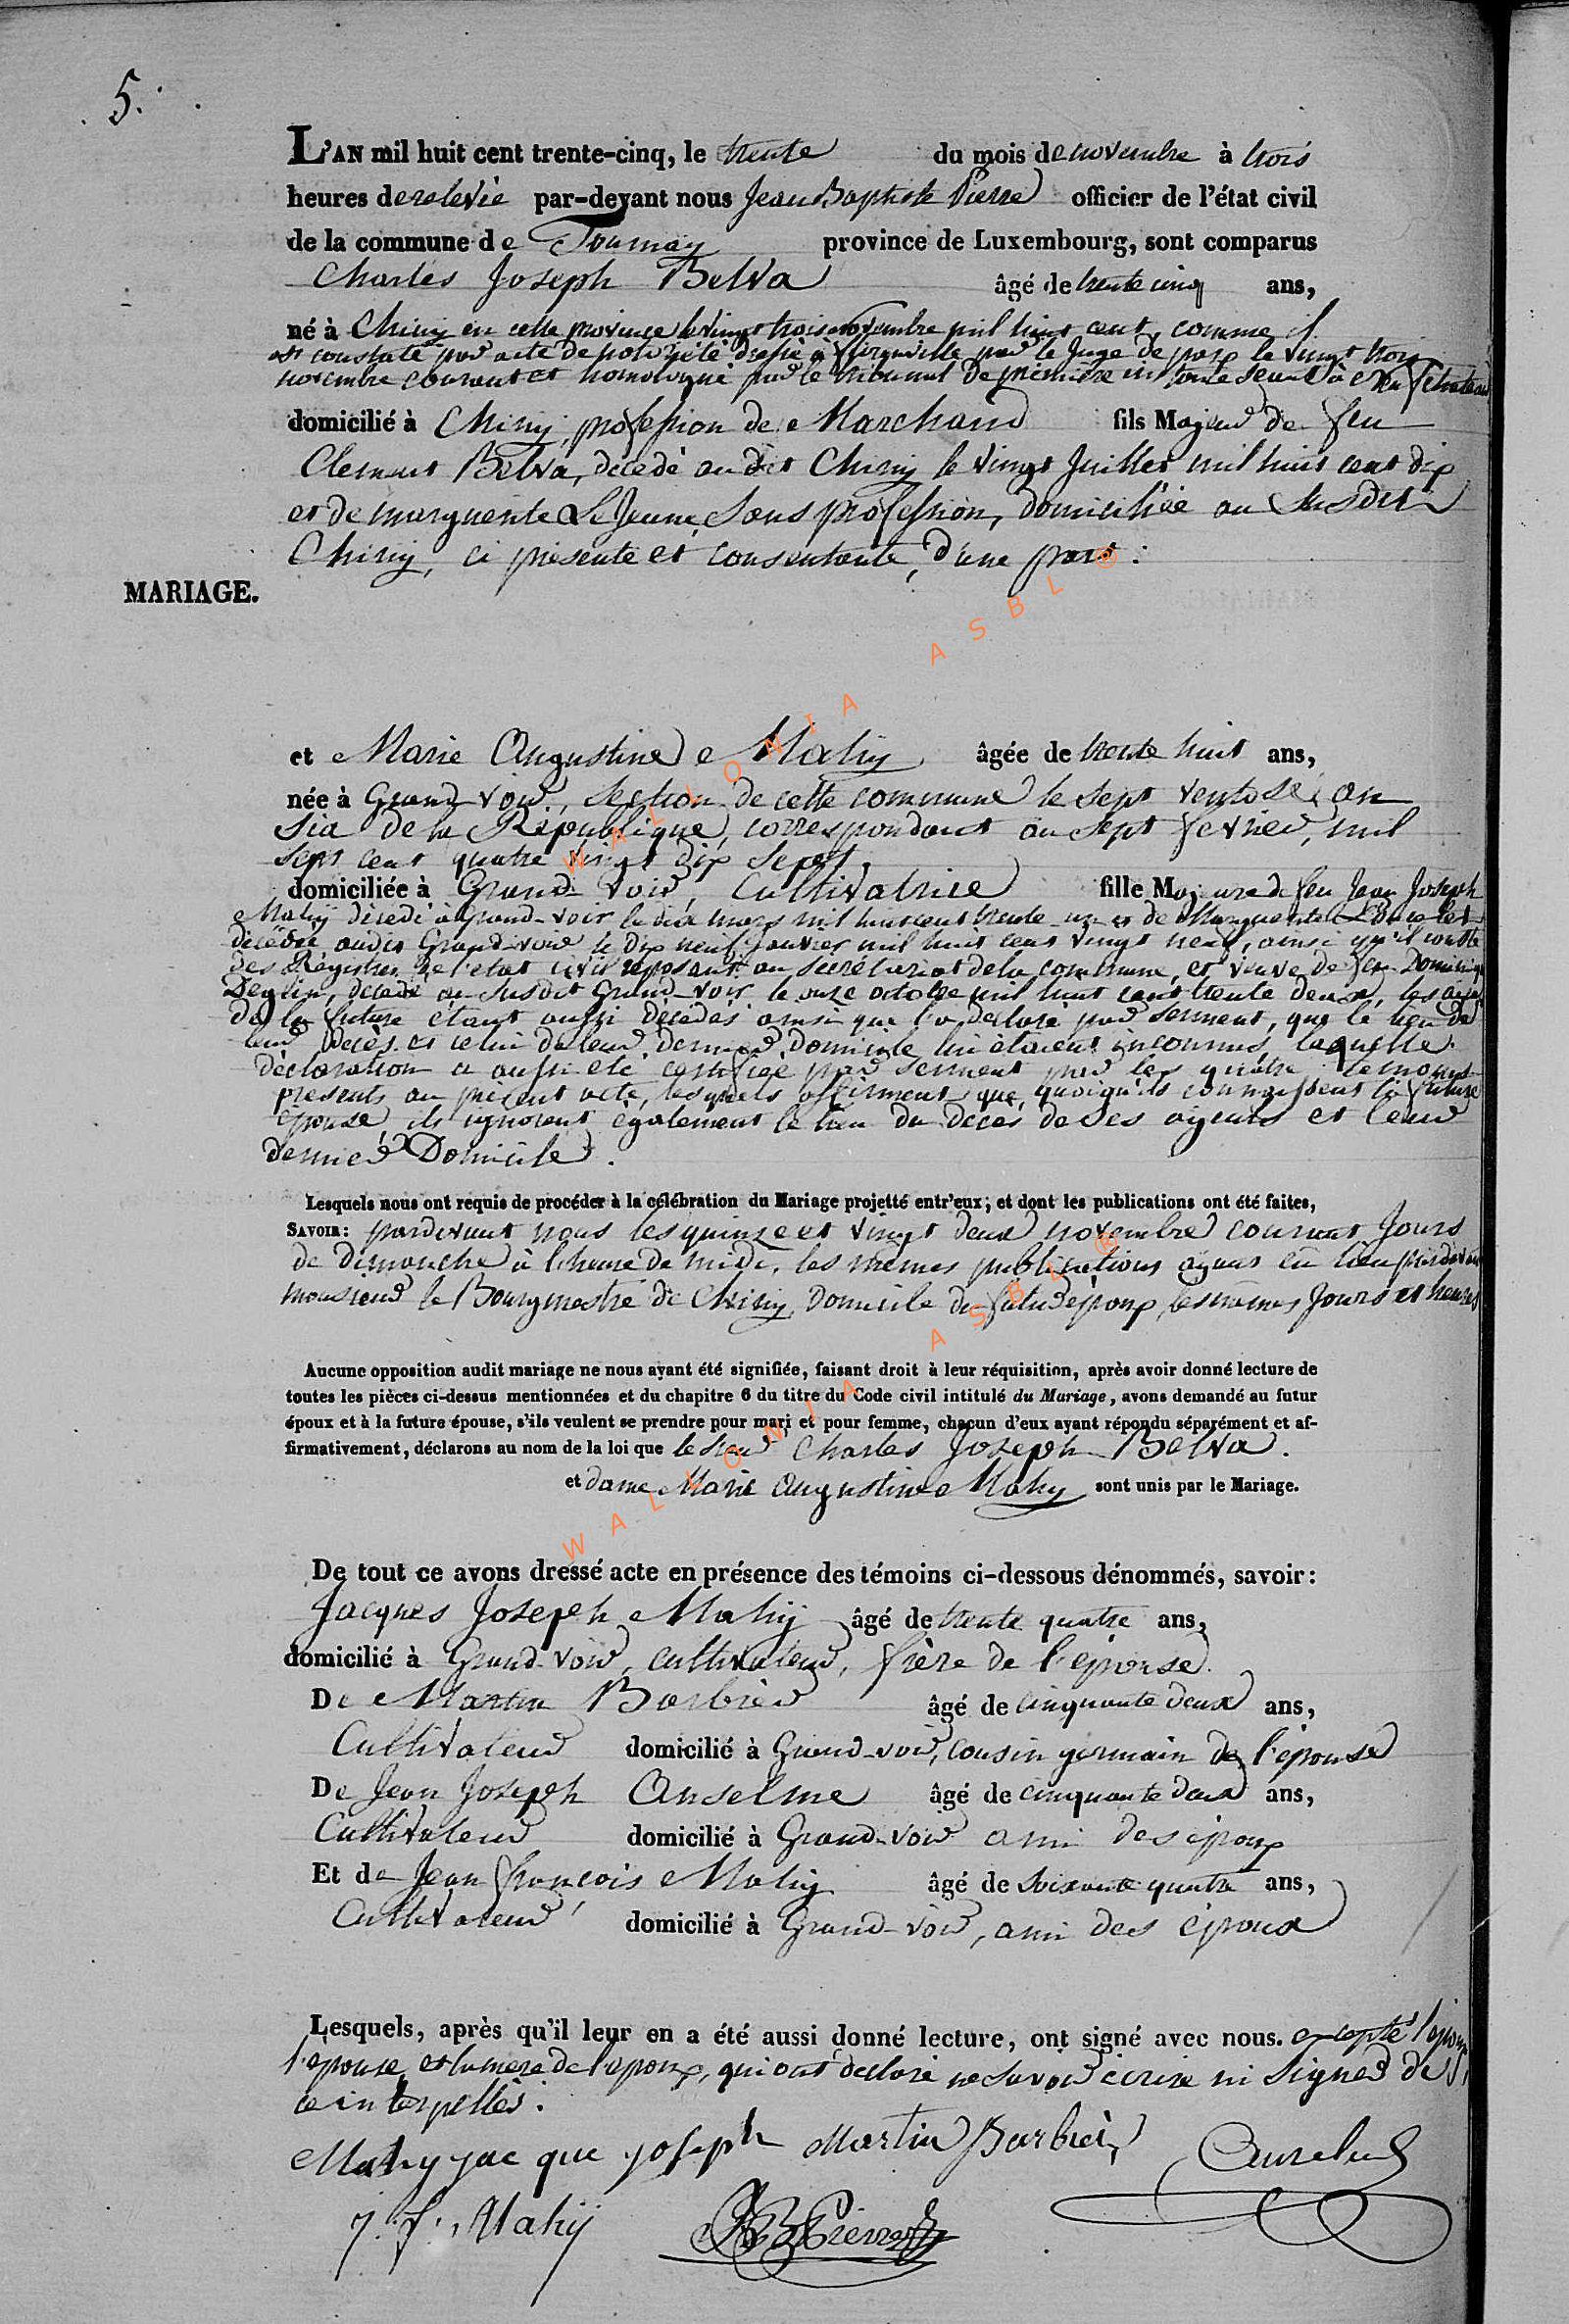 5.
L'AN mil huit cent trente-cinq, le trente du mois de novembre à trois
heures de relevée par-devant nous Jean Baptiste Pierre officier de l'état civil
de la commune de Tournay province de Luxembourg, sont comparus
Charles Joseph Belva âgé de trente cinq ans,
né à Chiny en cette province le vingt trois novembre mil huit cent, comme il
est constaté par acte de notoriété dressé à par le Juge de paix le vingt trois
novembre courant et homologué par le tribunal de première instance séant à Neufchateau
domicilié à Chiny, profession de Marchand fils Majeur de feu
Clement Belva, décédé au dit Chiny le vingt Juillet mil huit cent dix
et de marguerite Le Jeune, Sans profession, domiciliée au Susdit
Chiny, ci présente et consentante, d'une part :
MARIAGE.
et Marie Augustine Mahy âgée de trente huit ans,
née à Grand-voir, section de cette commune le sept ventose, an
Six de la République, correspondant au sept fevrier, mil
sept cent quatre vingt dix sept,
domiciliée à Grand-voir, Cultivatrice fille Majeure de feu Jean Joseph
Mahy décédé à Grand-voir le dix mars mil huit cent trente un et de Marguerite
décédée audit Grand-voir le dix neuf Janvier mil huit cent vingt neuf, ainsi qu'il conste
des Régistres de l'état civil reposant au sécrétariat de la commune, et veuve de feu Dominique
Deglin, décédé au susdit Grand-voir le onze octobre mil huit cent trente deux, les ayeux
de la future étant aussi décédés ainsi que l'a déclaré par serment, que le lieu de
leur décès et celui de leur dernier domicile lui étaient inconnus, laquelle
déclaration a aussi été certifiée par serment par les quatre témoins
présents au présent acte, lesquels affirment que, quoiqu'ils connaissent la future
épouse, ils ignorent également le lieu du décès de ses ayeuls et leur
dernier Domicile.
Lesquels nous ont requis de procéder à la célébration du Mariage projetté entr'eux; et dont les publications ont été faites,
SAVOIR: pardevant nous les quinze et vingt deux novembre courant Jours
de dimanche à l'heure de midi, les mêmes publications ayant eu lieu pardevant
monsieur le Bourgmestre de Chiny, domicile du futur époux, les mêmes Jours et heures
Aucune opposition audit mariage ne nous ayant été signifiée, faisant droit à leur réquisition, après avoir donné lecture de
toutes les pièces ci-dessus mentionnées et du chapitre 6 du titre du Code civil intitulé du Mariage, avons demandé au futur
époux et à la future épouse, s'ils veulent se prendre pour mari et pour femme, chacun d'eux ayant répondu séparément et af-
firmativement, déclarons au nom de la loi que le Sieur Charles Joseph Belva.
et dame Marie Augustine Mahy sont unis par le Mariage.
De tout ce avons dressé acte en présence des témoins ci-dessous dénommés, savoir:
Jacques Joseph Mahy âgé de trente quatre ans,
domicilié à Grand-voir, cultivateur, frère de l'épouse.
De Martin Barbier âgé de cinquante deux ans,
Cultivateur domicilié à Grand-voir, cousin germain de l'épouse
De Jean Joseph Anselme âgé de cinquante deux ans,
Cultivateur domicilié à Grand-voir ami des époux
Et de Jean françois Mahy âgé de soixante quatre ans,
Cultivateur domicilié à Grand-voir, ami des époux
Lesquels, après qu'il leur en a été aussi donné lecture, ont signé avec nous. excepté l'époux
l'épouse et la mère de l'époux, qui ont déclaré ne savoir écrire ni Signer de
ce interpellés.
Mahy jac que joseph Martin Barbier
J. f. Mahy JB Pierre
WALLONIA ASBL ®
WALLONIA ASBL ®